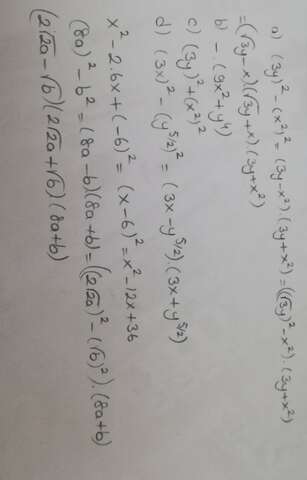 a) (3y)² - (x²)² = (3y-x²).(3y+x²) = ((√3y)²-x²).(3y+x²)
= (√3y-x)(√3y+x).(3y+x²)
b) -.(9x²+y⁴)
c) (3y)²+(x²)²
d) (3x)² - (y^5/2)² = (3x-y^5/2).(3x+y^5/2)
x² - 2.6x + (-6)² = (x-6)² = x²-12x+36
(8a)² - b² = (8a-b)(8a+b) = ((2√2a)² - (√b)²).(8a+b)
(2√2a-√b)(2√2a+√b)(8a+b)